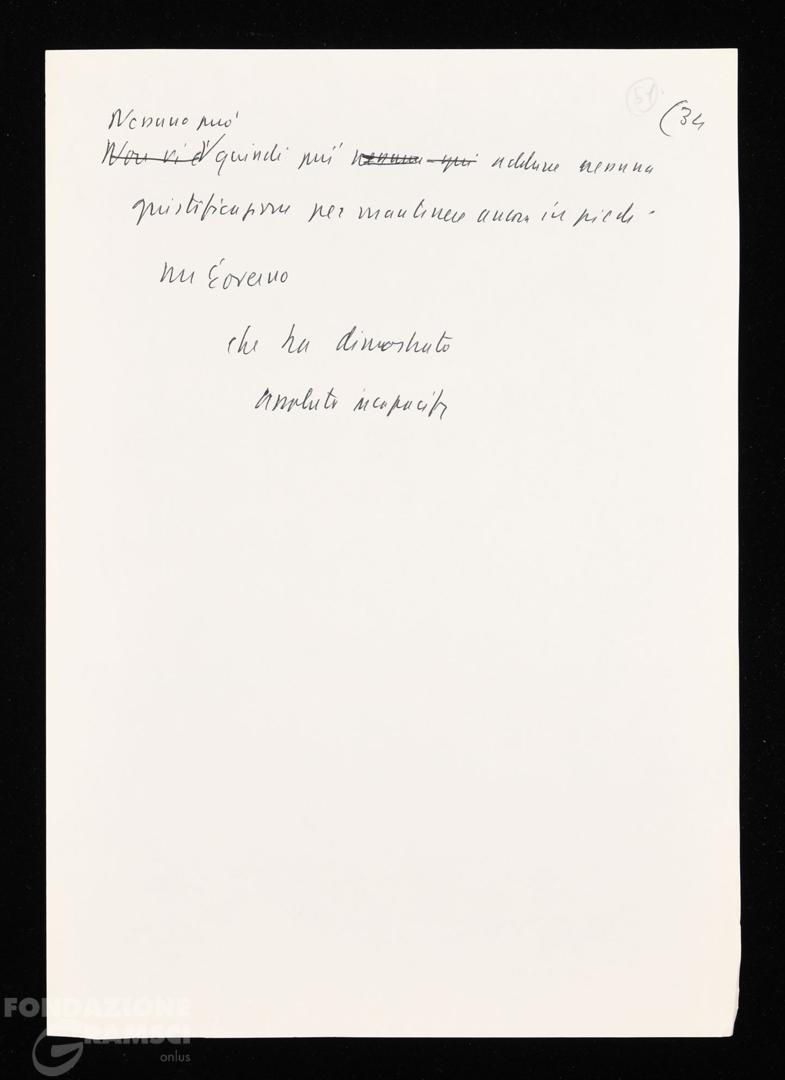 51
(34
Nessuno può
Non vi è quindi più nessuna qui addurre nessuna
giustificazione per mantenere ancora in piedi
un Governo
che ha dimostrato
assoluta incapacità
FONDAZIONE
GRAMSCI
onlus